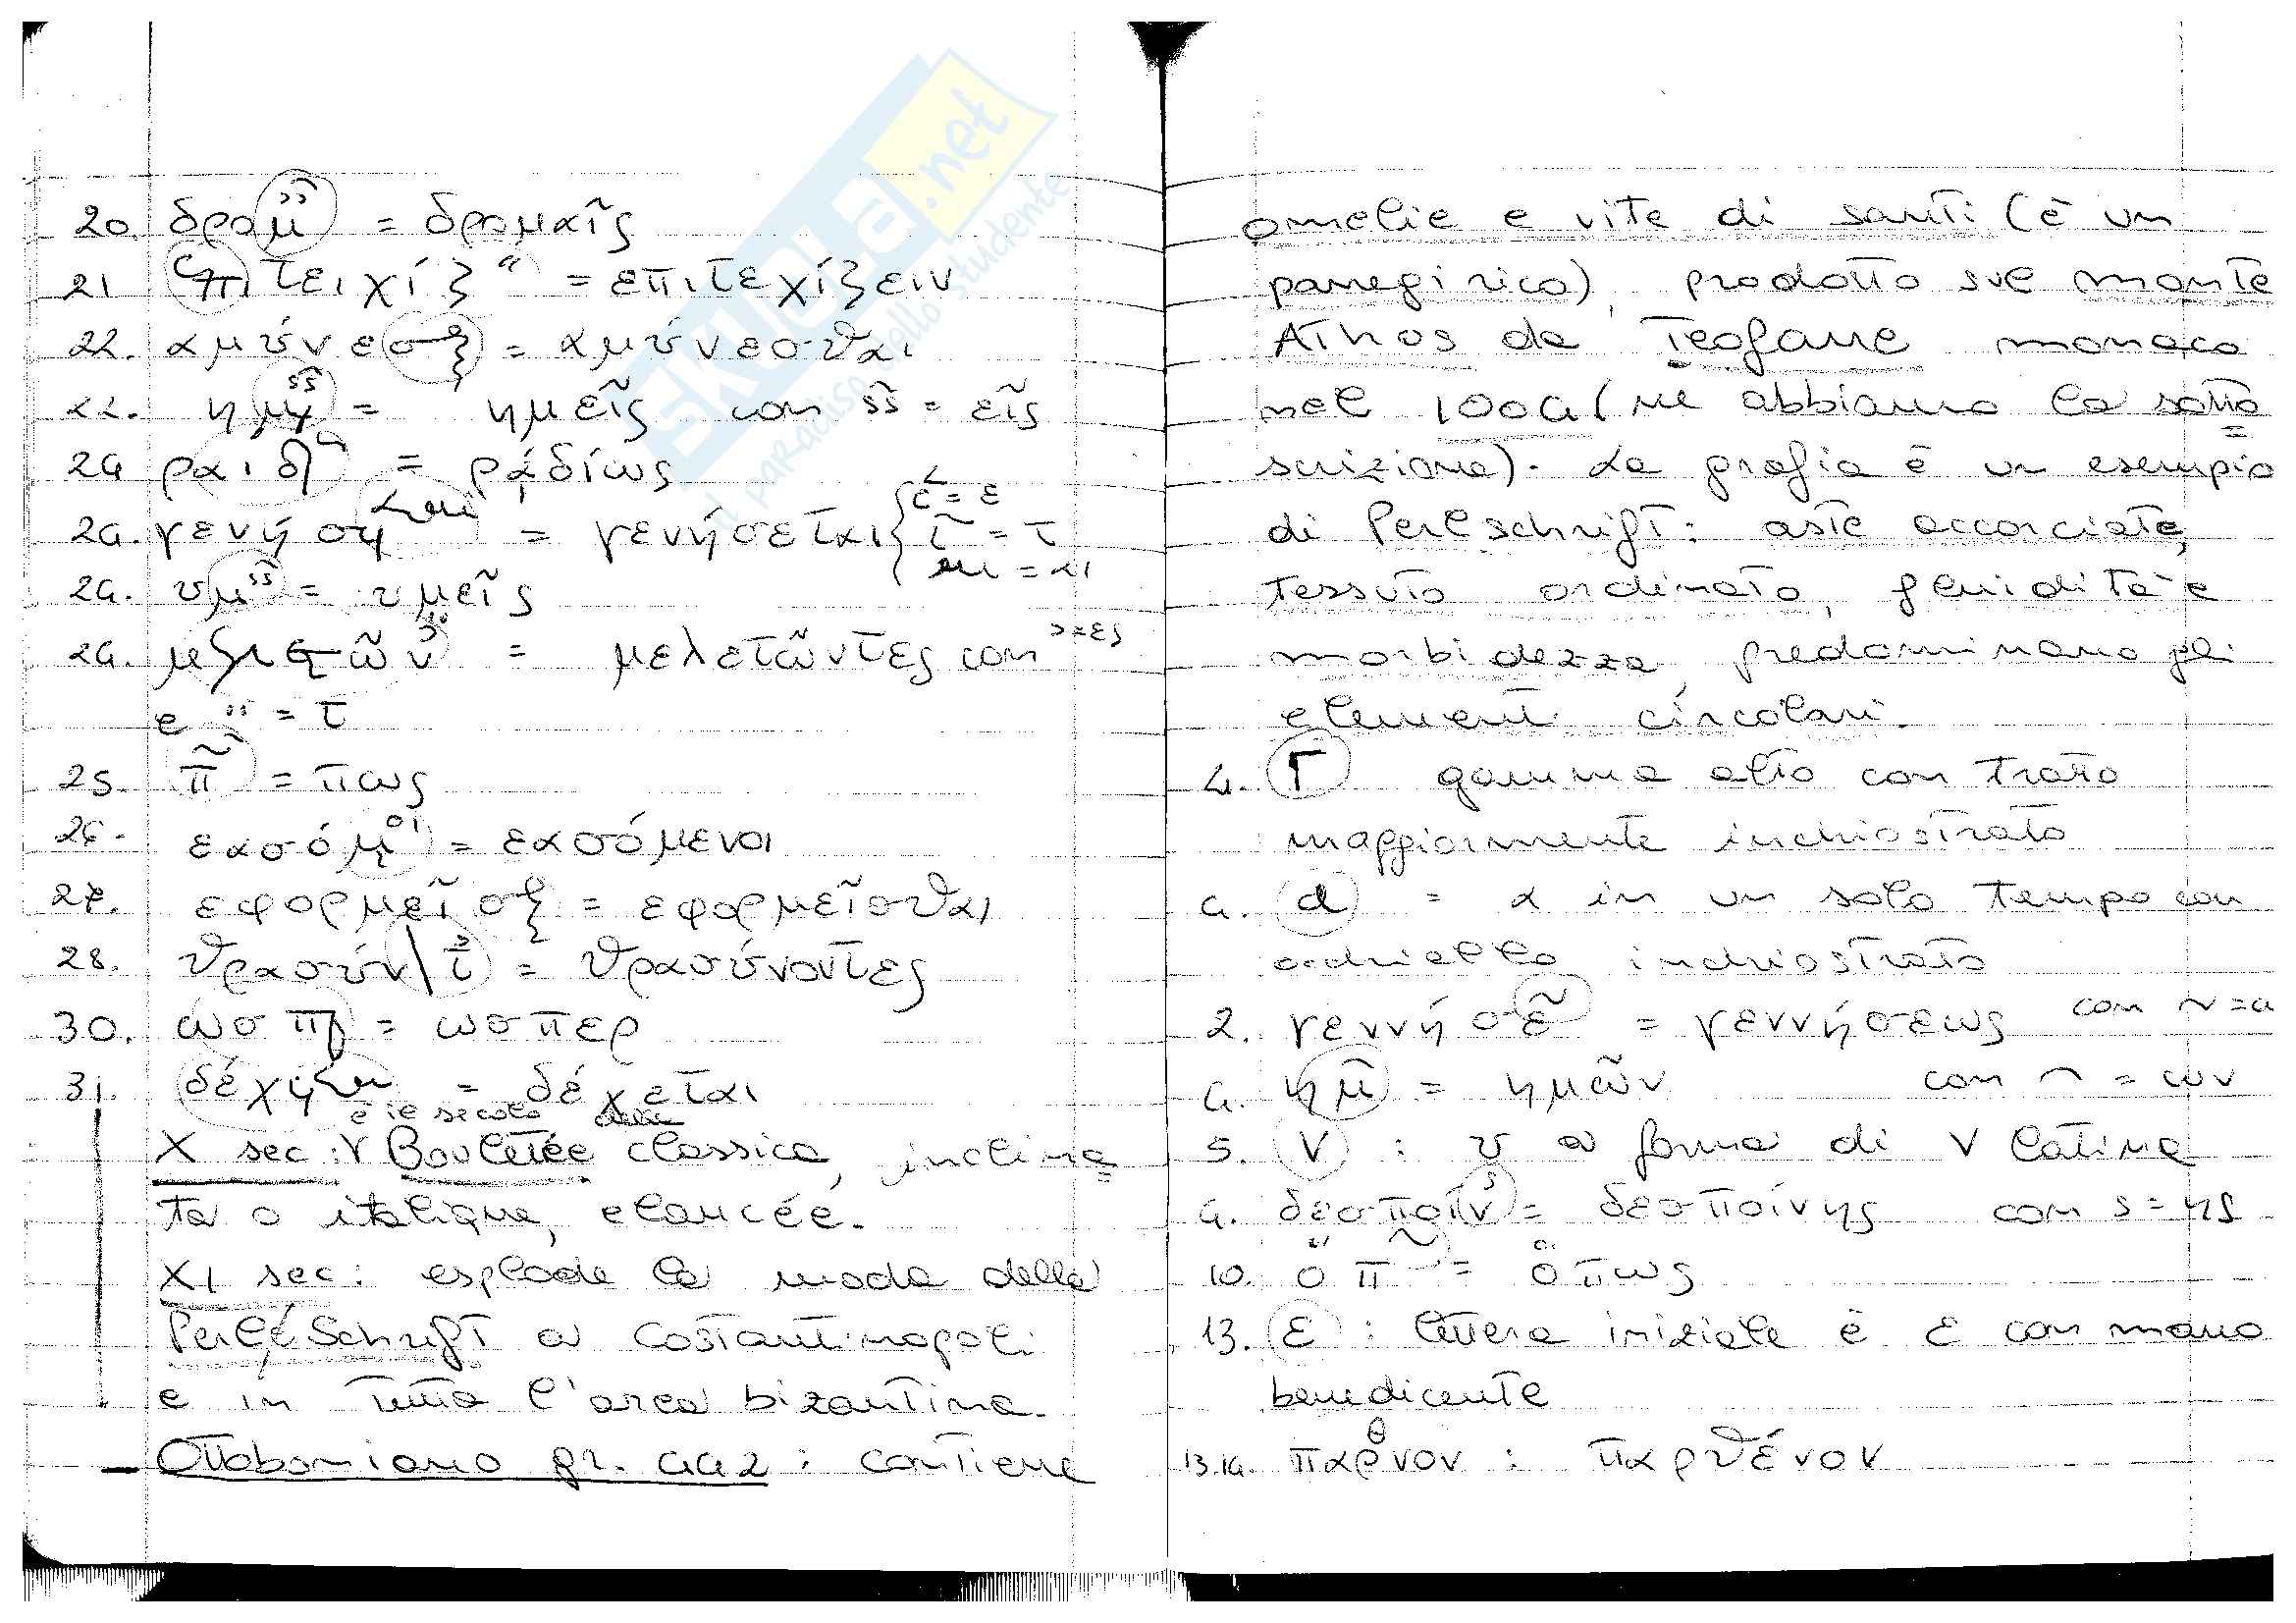 20. δραμ = δραμαῖς
21 πιτειχίζ = επιτεχίζειν
22. αμύνεσ = αμύνεσθαι
22. ημ = ημεῖς con = εῖς
24 ραιδ = ράδίως
= ε
24. γενήσ = γενήσεται = τ
= αι
24. υμ = υμεῖς
24. = μελετῶντες con = ες
e = τ
25. π͂ = πως
26. εασόμ = εασόμενοι
27. εφορμεῖσ = εφορμεῖσθαι
28. θρασύν/τ = θρασύνοντες
30. ωσπ = ωσπερ
31. δέχ = δέχεται
è il secolo della
X sec: Bouletée classica, inclina=
ta o italique, elancée.
XI sec: esplode la moda della
Perlschrift a Costantinopoli
e in tutta l'area bizantina.
Ottoboniano gr. 442: contiene
omelie e vite di santi (è un
panegirico), prodotto sul monte
Athos da Teofane monaco
nel 1004 (ne abbiamo la sotto=
scrizione). La grafia è un esempio
di Perlschrift: aste accorciate,
tessuto ordinato, fluidità e
morbidezza, predominano gli
elementi circolari.
4. Γ gamma alto con tratto
maggiormente inchiostrato
4. α = α in un solo tempo con
occhiello inchiostrato
2. γεννήσε͂ = γεννήσεως con ~ =
4. ημ = ημῶν con = ων
5. V : υ a forma di V latina
4. δεσποίν = δεσποίνης con s = ης
10. οπ͂ = οπως
13. ε : lettera iniziale è ε con mano
benedicente
θ
13.14. παρνον : παρθένον
EKUIOLA.net
il paradiso dello studente